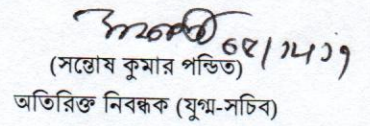 (সন্তোষ কুমার পন্ডিত)
অতিরিক্ত নিবন্ধক (যুগ্ম-সচিব)